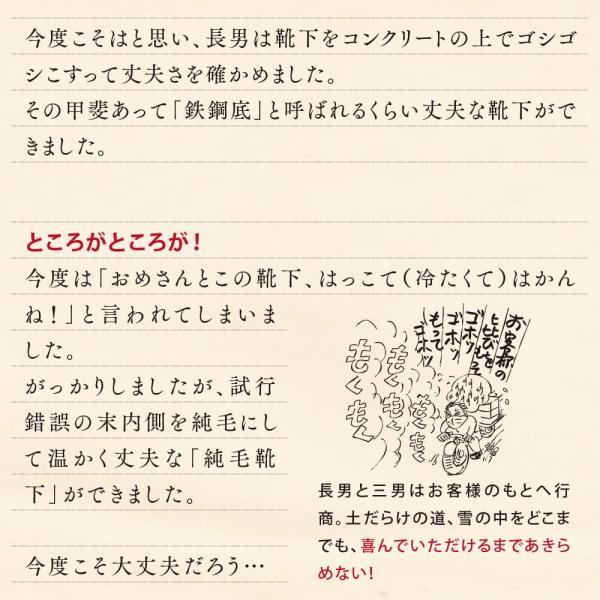 今度こそはと思い、長男は靴下をコンクリートの上でゴシゴ
シこすって丈夫さを確かめました。
その甲斐あって「鉄鋼底」と呼ばれるくらい丈夫な靴下がで
きました。
ところがところが！
今度は「おめさんとこの靴下、はっこて（冷たくて）はかん
ね！」と言われてしまいま
した。
がっかりしましたが、試行
錯誤の末内側を純毛にし
て温かく丈夫な「純毛靴
下」ができました。
今度こそ大丈夫だろう…
お客様の
ゴホッ
ゴホッ
もって
ゴホッ
もくもく
もくもく
もくもく
長男と三男はお客様のもとへ行
商。土だらけの道、雪の中をどこま
でも、喜んでいただけるまであきら
めない！